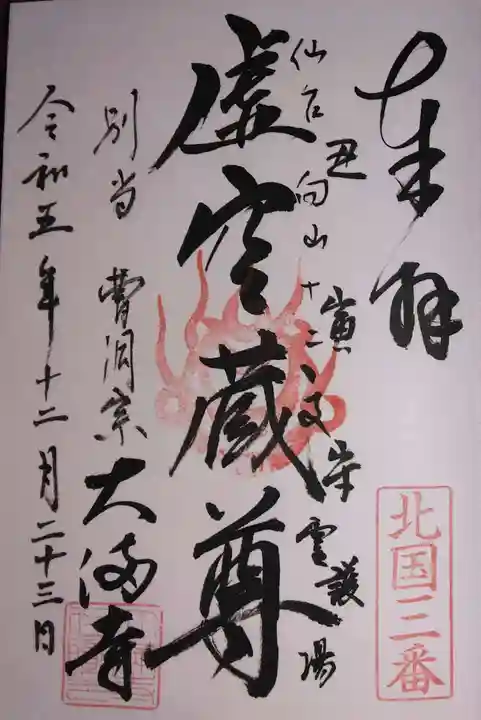 奉拝
北国三番
丑寅守護
仙台向山十二支霊場
虚空蔵尊
別当 曹洞宗 大満寺
令和五年十二月二十三日